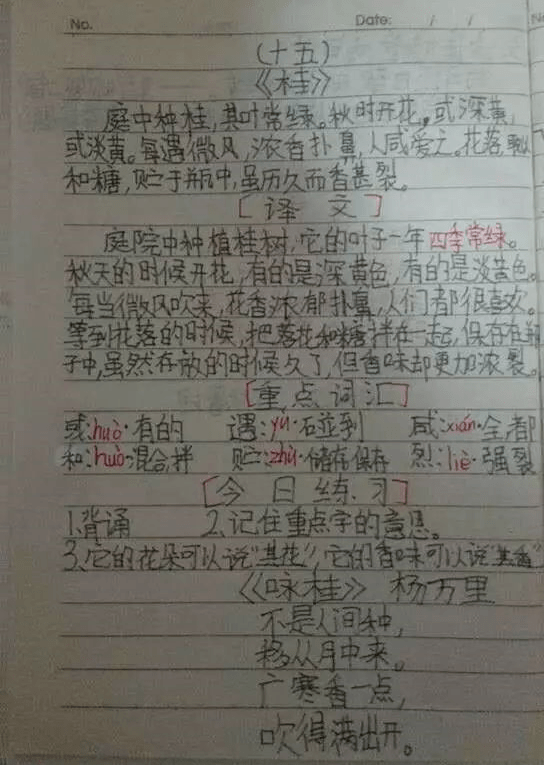 No.
Date: / /
(十五)
《桂》
庭中种桂,其叶常绿。秋时开花,或深黄,
或淡黄。每遇微风,浓香扑鼻,人咸爱之。花落,取以
和糖,贮于瓶中,虽历久而香甚裂。
[译文]
庭院中种植桂树,它的叶子一年四季常绿。
秋天的时候开花,有的是深黄色,有的是淡黄色。
每当微风吹来,花香浓郁扑鼻,人们都很喜欢。
等到花落的时候,把落花和糖拌在一起,保存在瓶
子中,虽然存放的时候久了,但香味却更加浓裂。
[重点词汇]
或:huò·有的 遇:yù·碰到 咸:xián·全,都
和:huò·混合,拌 贮:zhù·储存,保存 烈:liè·强裂
[今日练习]
1.背诵 2.记住重点字的意思。
3.它的花朵可以说"其花",它的香味可以说"其香"
《咏桂》 杨万里
不是人间种,
移从月中来。
广寒香一点,
吹得满出开。